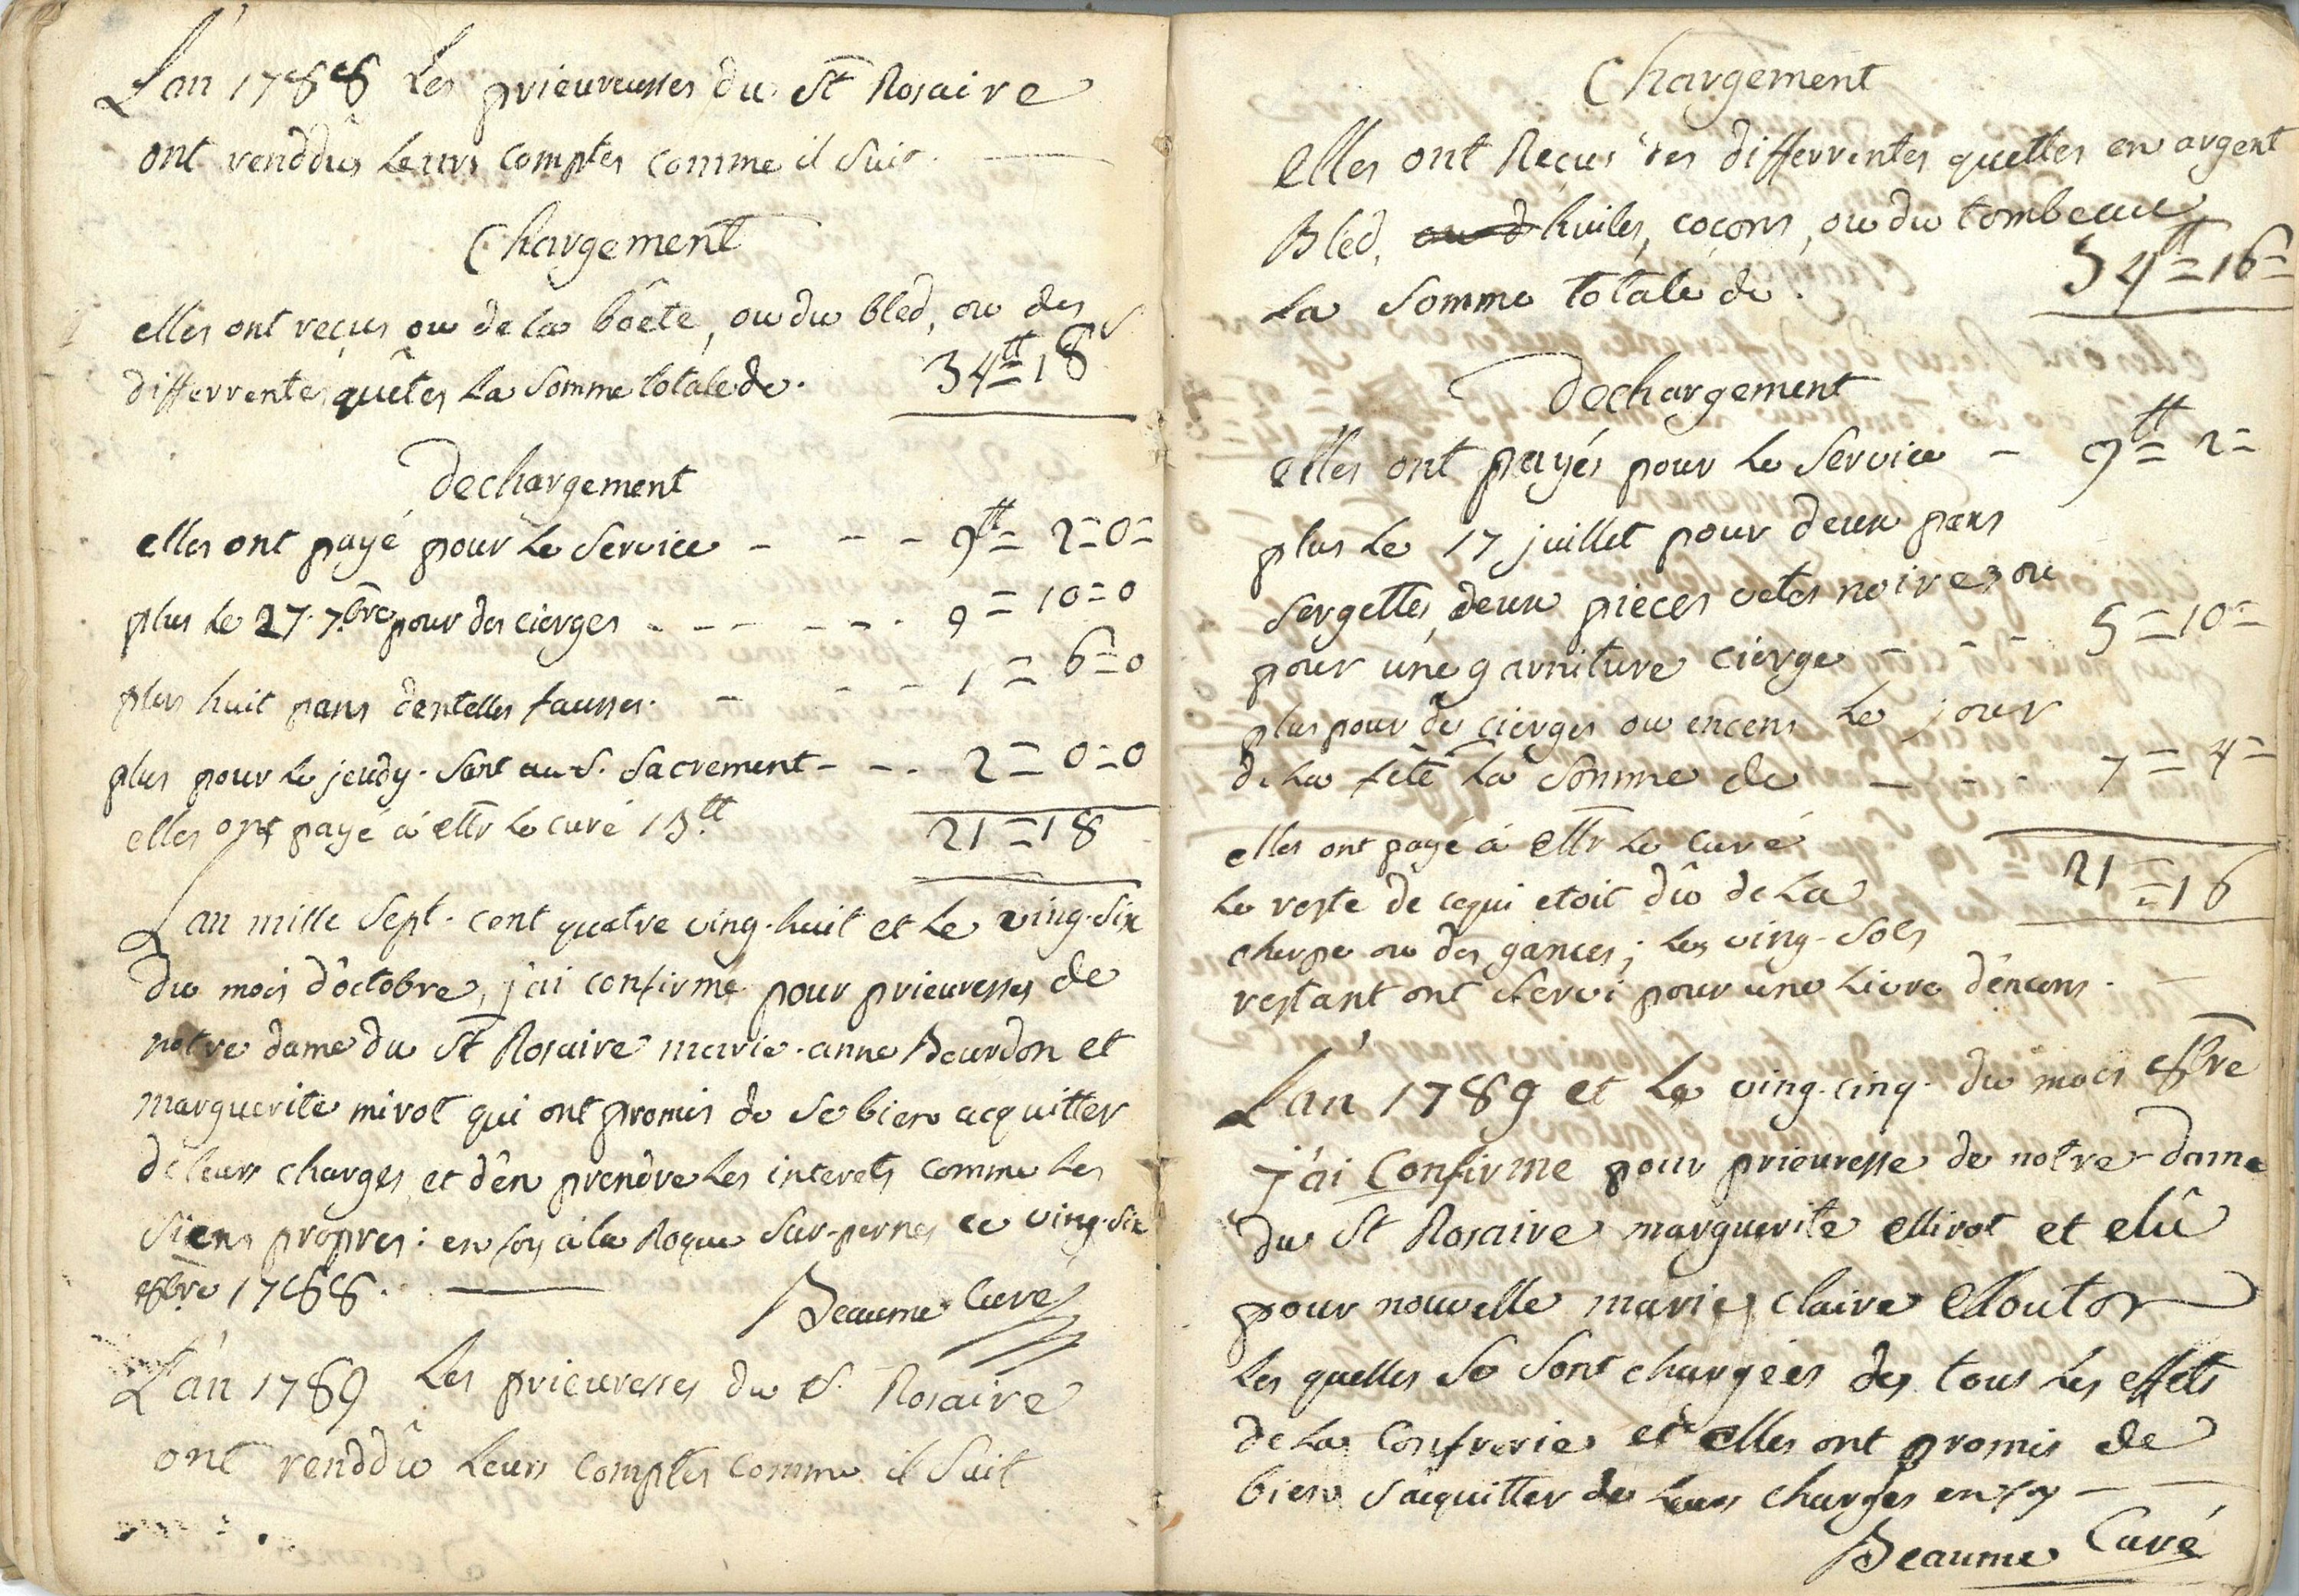 L'an 1788 Les prieureusses du St Rosaire
ont renddûs Leurs comptes comme il suit.
Chargement
elles ont reçus ou de la bôete, ou du bled, ou des
differrentes quêtes La somme totale de. 34tt=18s
Dechargement
elles ont payé pour Le service - - - 9tt=2=0=
plus Le 27. 7bre pour des cierges - - - - - - 9=10=0
plus huit pans dentelles fausses. - - - 1=6=0
plus pour le jeudy-sant au S. Sacrement - - - 2=0=0
elles ont payé à Mr Le curé 13tt 21=18
L'an mille sept-cent quatre ving-huit et Le ving-six
du mois d'octobre, j'ai confirmé pour prieuresses de
notre dame du St Rosaire marie-anne Bourdon et
marguerite mirot qui ont promis de se bien acquitter
de leurs charges et d'en prendre Les interets comme Les
siens propres: en foy à la Roque sur-pernes ce ving-six
8bre 1788.
Beaume Curé
L'an 1789 Les prieuresses du S. Rosaire
ont renddû Leurs comptes comme il suit
Chargement
elles ont Reçus des differrentes quettes en argent
Bled, ou d huiles, cocons, ou du tombeau
La somme totale de. 34tt=16=
Dechargement
elles ont payés pour Le service - 9tt=2=
plus Le 17 juillet pour deux pans
sergettes, deux pieces vetes noires ou
pour une garniture cierge - - - 5=10=
plus pour de cierges ou encens Le jour
de La fête La somme de - - - 7=4=
elles ont payé à Mr Le curé
Le reste de cequi etoit dû de La 21=16
cherpe ou des gances; Les ving-sols
restant ont servi pour une Livre d'encens.
L'an 1789 et Le ving-cinq du mois 8bre
j'ai Confirme pour prieuresse de notre-dame
du St Rosaire marguerite Mirot et elû
pour nouvelle marie claire Mouton
Les quelles se sont chargées des tous Les effets
de La Confrerie et elles ont promis de
bien s'acquitter de Leurs charges en foy
Beaume Curé